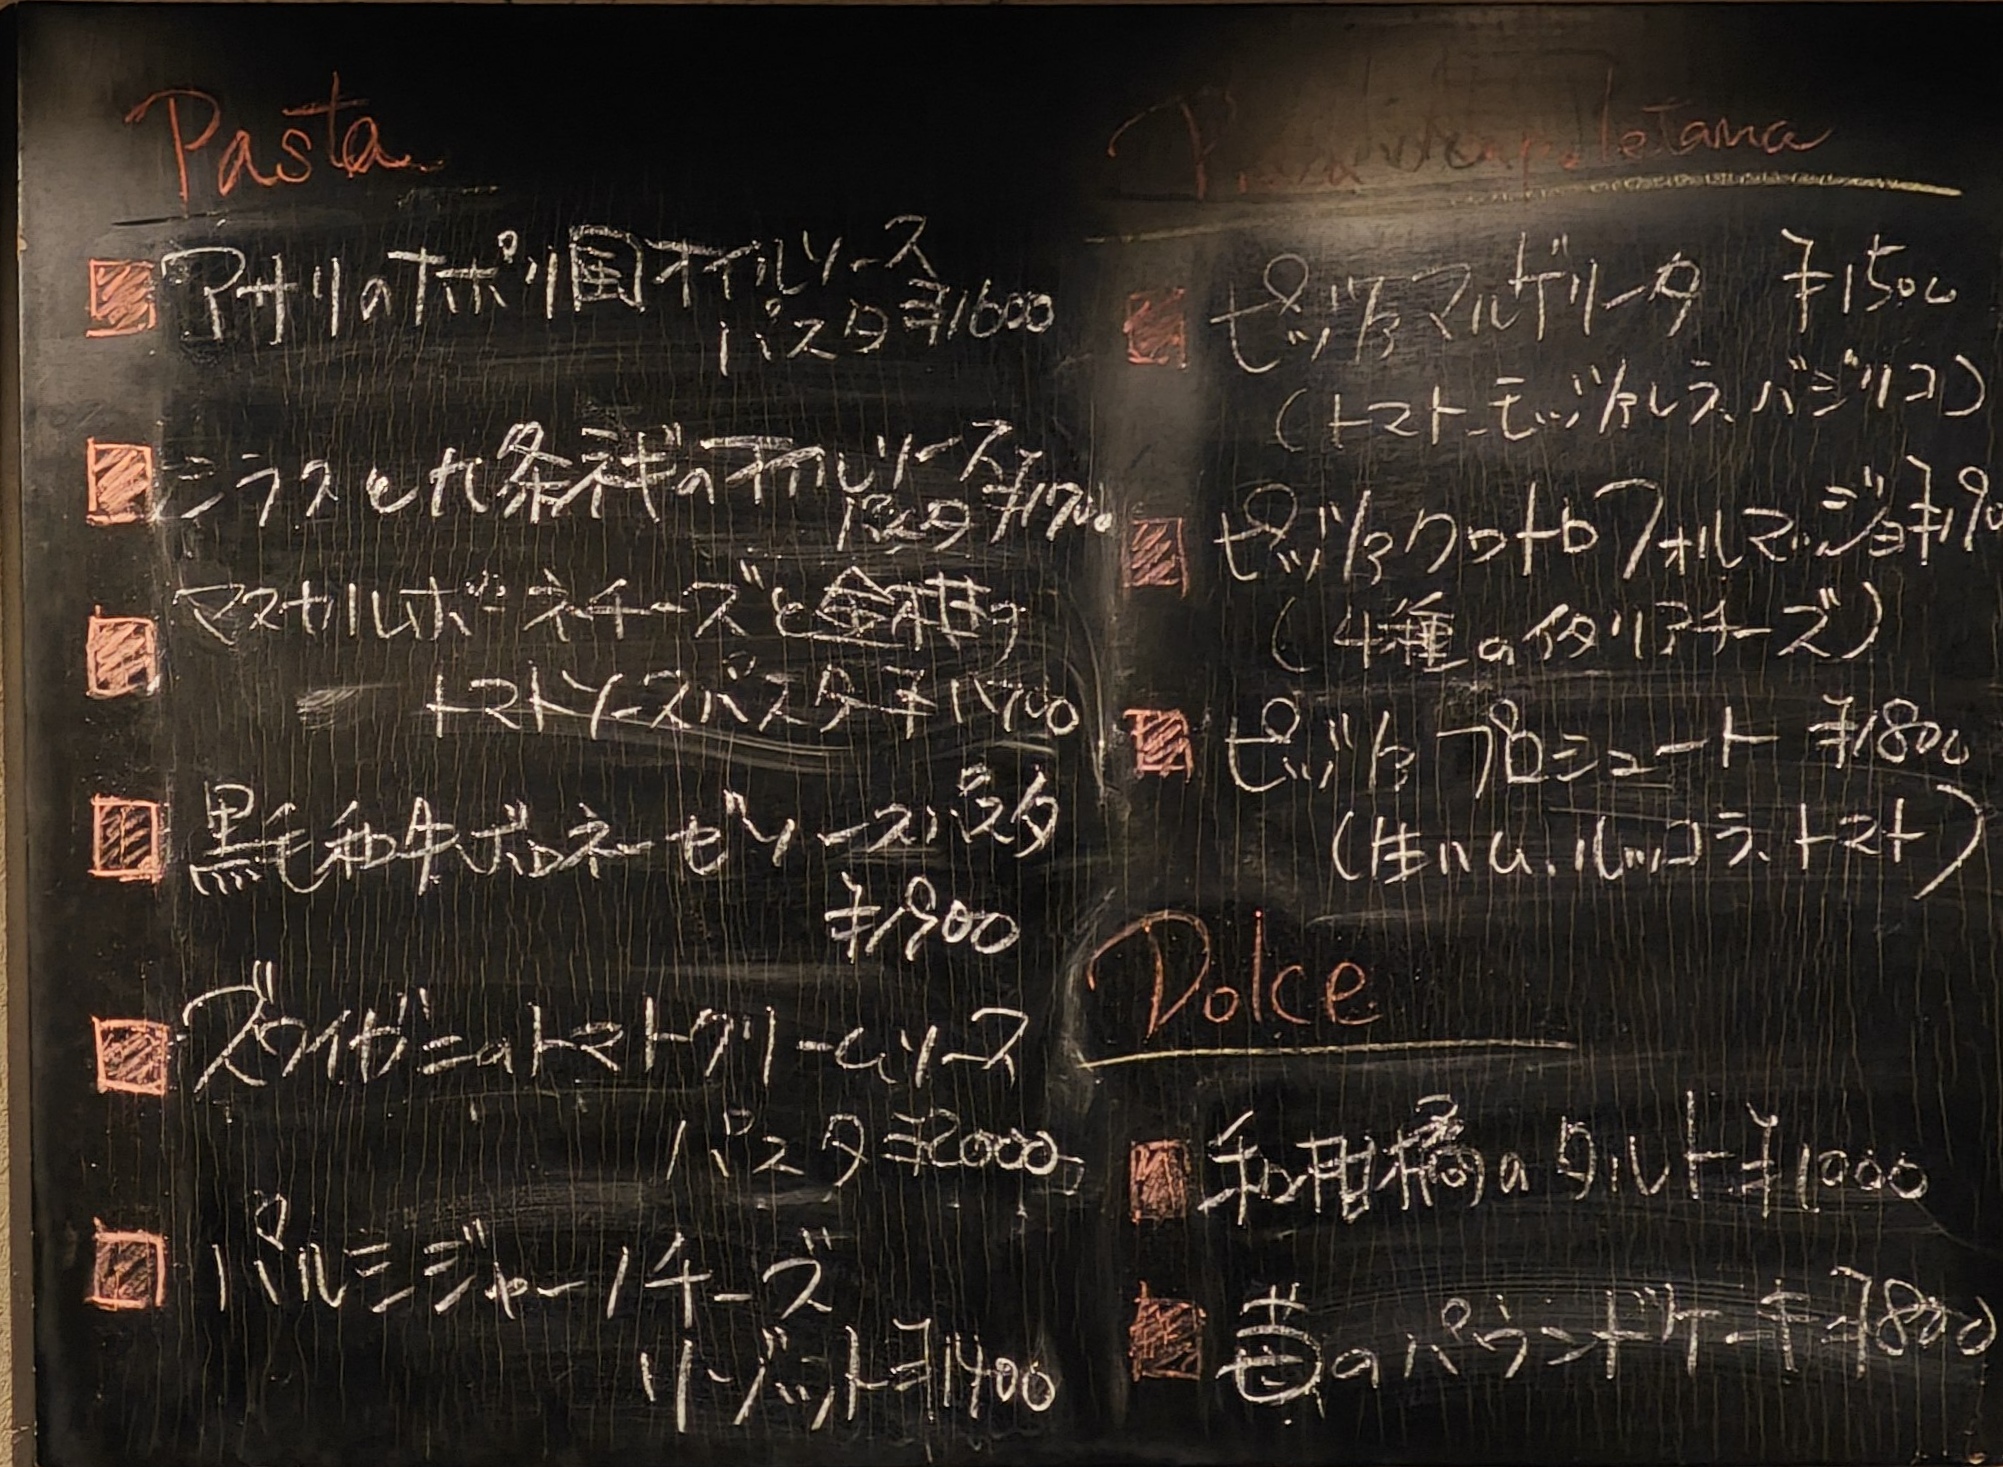 Pasta
アサリのナポリ風オイルソース
パスタ ¥1600
シラスと九条ネギのオイルソース
パスタ ¥1700
マスカルポーネチーズと
トマトソースパスタ ¥1700
黒毛和牛ボロネーゼソースパスタ
¥1900
ズワイガニのトマトクリームソース
パスタ ¥2000
パルミジャーノチーズ
リゾット ¥1400
Pizza Napoletana
ピッツァマルゲリータ ¥1500
(トマト、モッツァレラ、バジリコ)
ピッツァクワトロフォルマッジョ ¥190
(4種のイタリアチーズ)
ピッツァプロシュート ¥1800
(生ハム、ルッコラ、トマト)
Dolce
和柑橘のタルト ¥1000
苺のパウンドケーキ ¥800